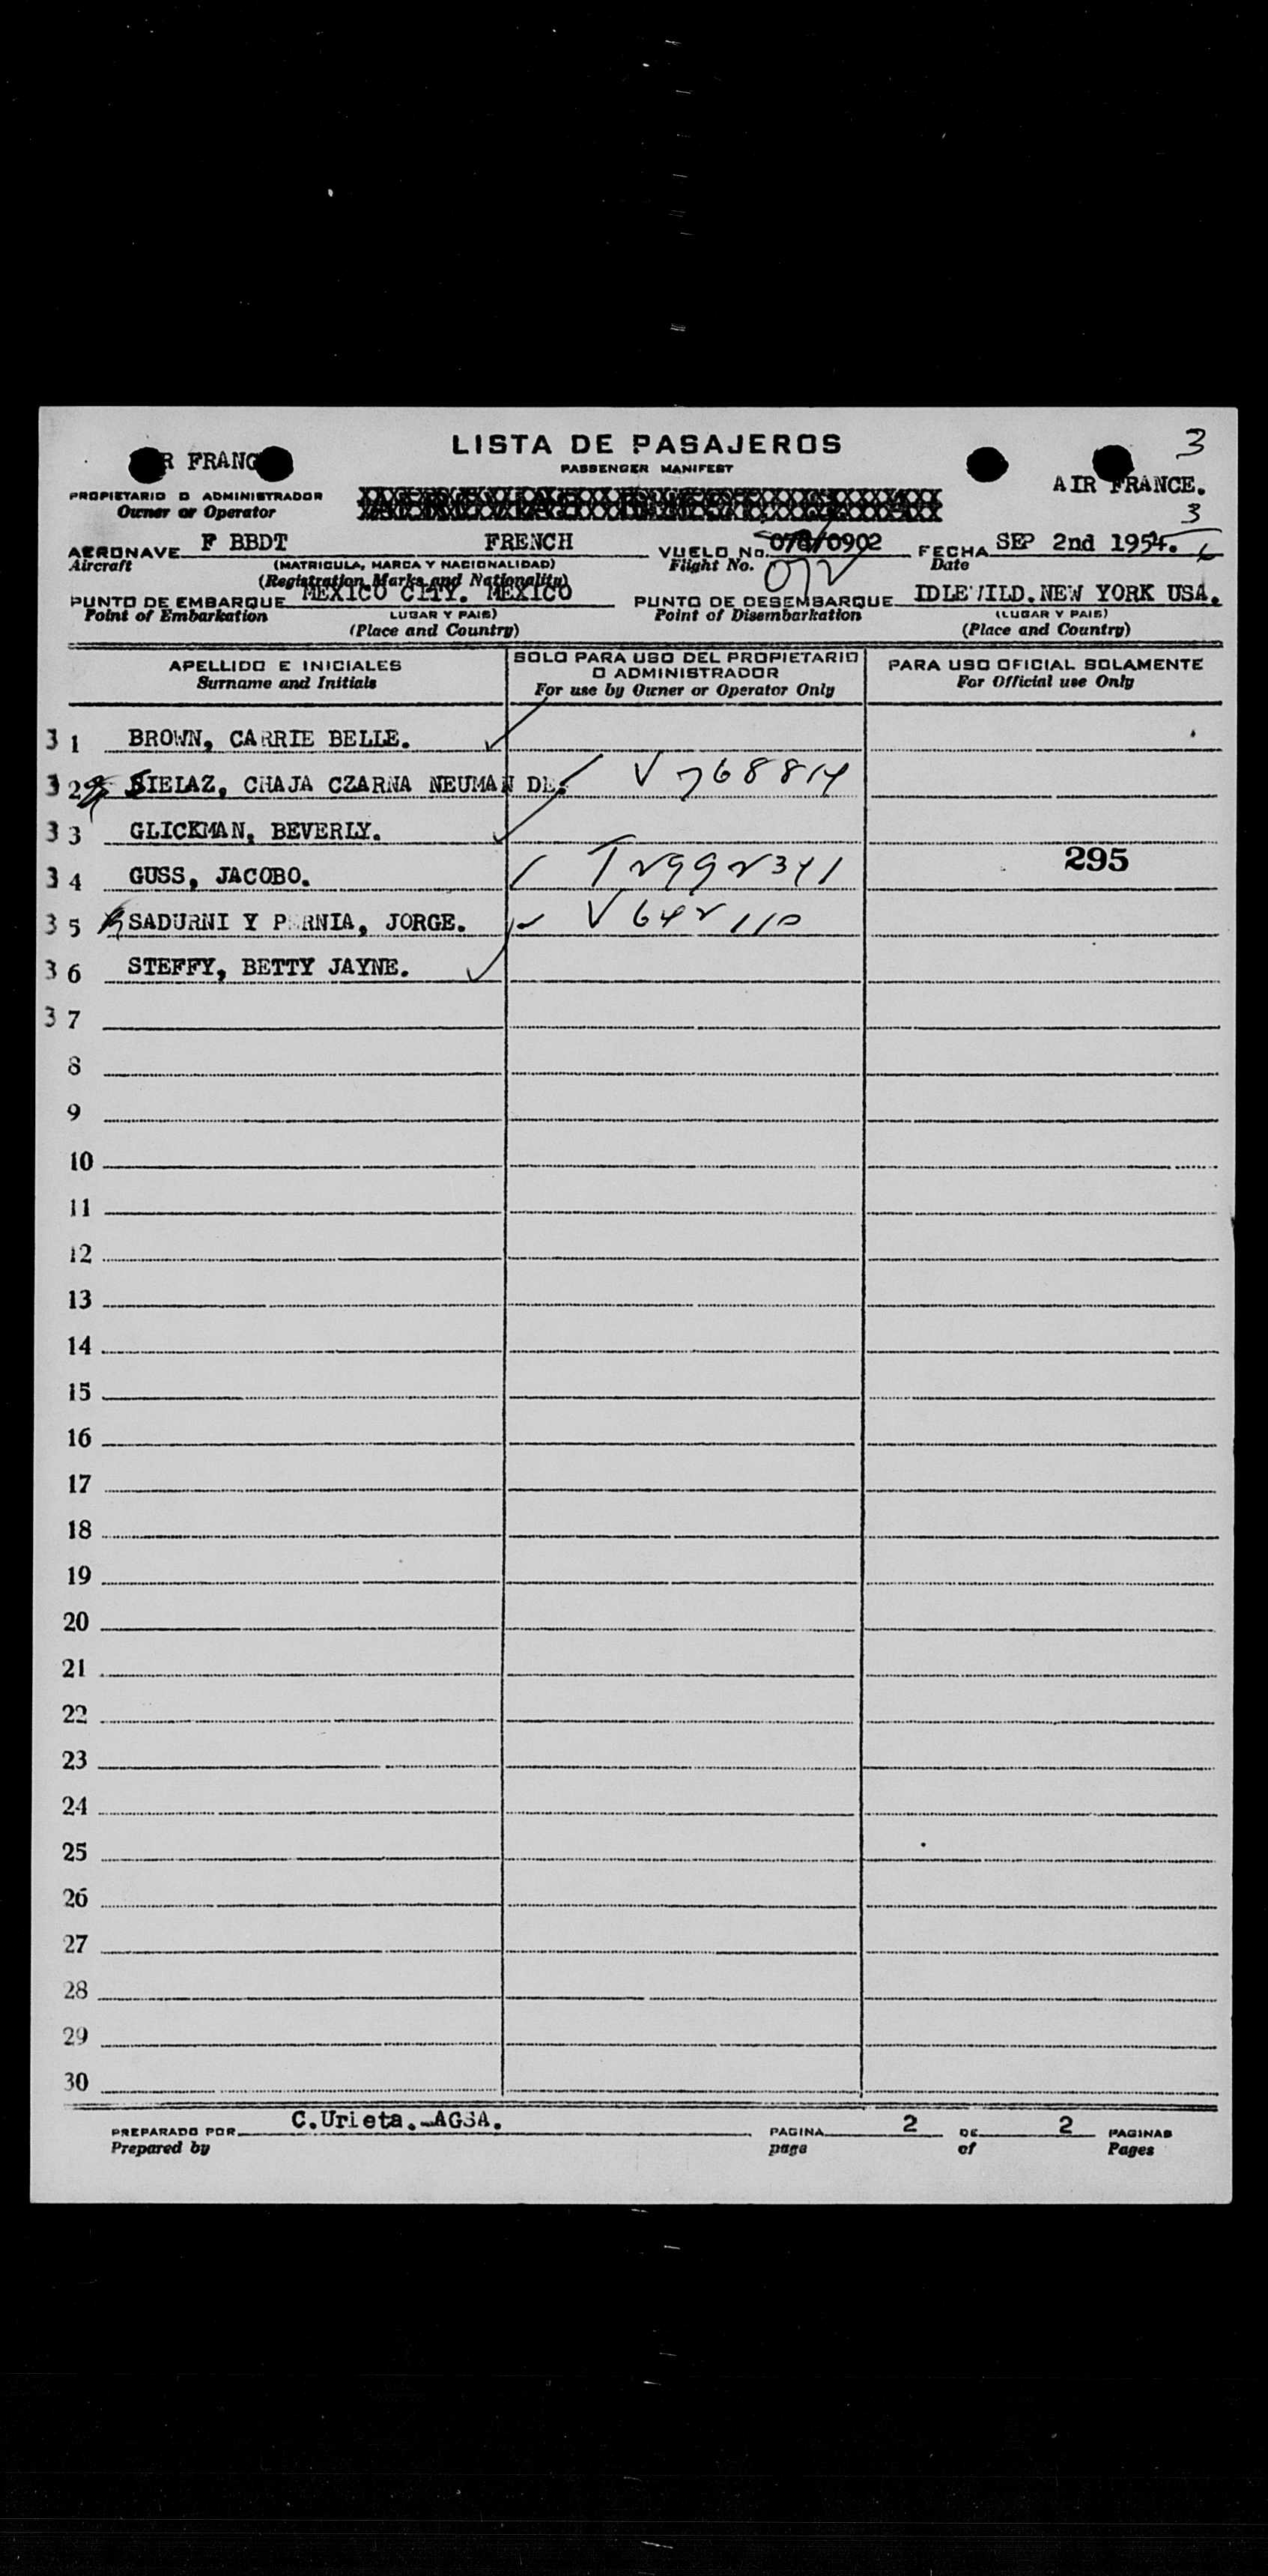 LISTA DE PASAJEROS
PASSENGER MANIFEST
3
R FRANC
AIR FRANCE.
PROPIETARIO O ADMINISTRADOR
Owner or Operator
3
6
AERONAVE F BBDT FRENCH VUELO No. 0902 FECHA SEP 2nd 1954.
Aircraft (MATRICULA, MARCA Y NACIONALIDAD) Flight No. 072 Date
(Registration Marks and Nationality)
PUNTO DE EMBARQUE MEXICO CITY. MEXICO PUNTO DE DESEMBARQUE IDLEWILD.NEW YORK USA.
Point of Embarkation LUGAR Y PAIS) Point of Disembarkation (LUGAR Y PAIS)
(Place and Country) (Place and Country)
APELLIDO E INICIALES SOLO PARA USO DEL PROPIETARIO O ADMINISTRADOR PARA USO OFICIAL SOLAMENTE
Surname and Initials For use by Owner or Operator Only For Official use Only
3 1 BROWN, CARRIE BELLE.
3 2 SIELAZ, CHAJA CZARNA NEUMAN DE. V 768814
3 3 GLICKMAN, BEVERLY.
3 4 GUSS, JACOBO. T 2992341 295
3 5 SADURNI Y P RNIA, JORGE. V 642110
3 6 STEFFY, BETTY JAYNE.
3 7
8
9
10
11
12
13
14
15
16
17
18
19
20
21
22
23
24
25
26
27
28
29
30
PREPARADO POR C.Urieta.-AGSA. PAGINA 2 DE 2 PAGINAS
Prepared by page of Pages